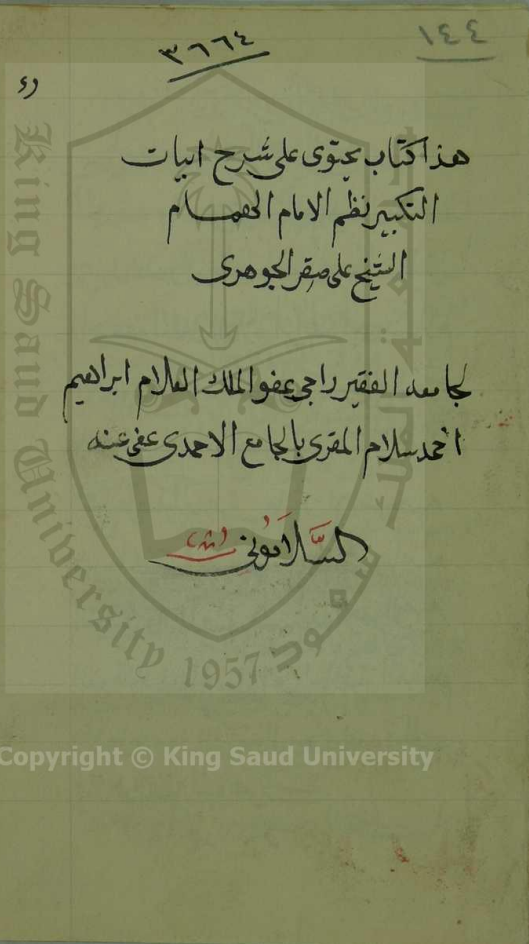 ١٤٤
٣٦٦٤
هذا كتاب يحتوى على شرح ابيات
التكبير نظم الامام الهمام
الشيخ على صقر الجوهرى
لجامعه الفقير راجى عفو الملك العلام ابراهيم
احمد سلام المقرى بالجامع الاحمدى عفى عنه
السَّلامُونى
King Saud University
1957
Copyright © King Saud University